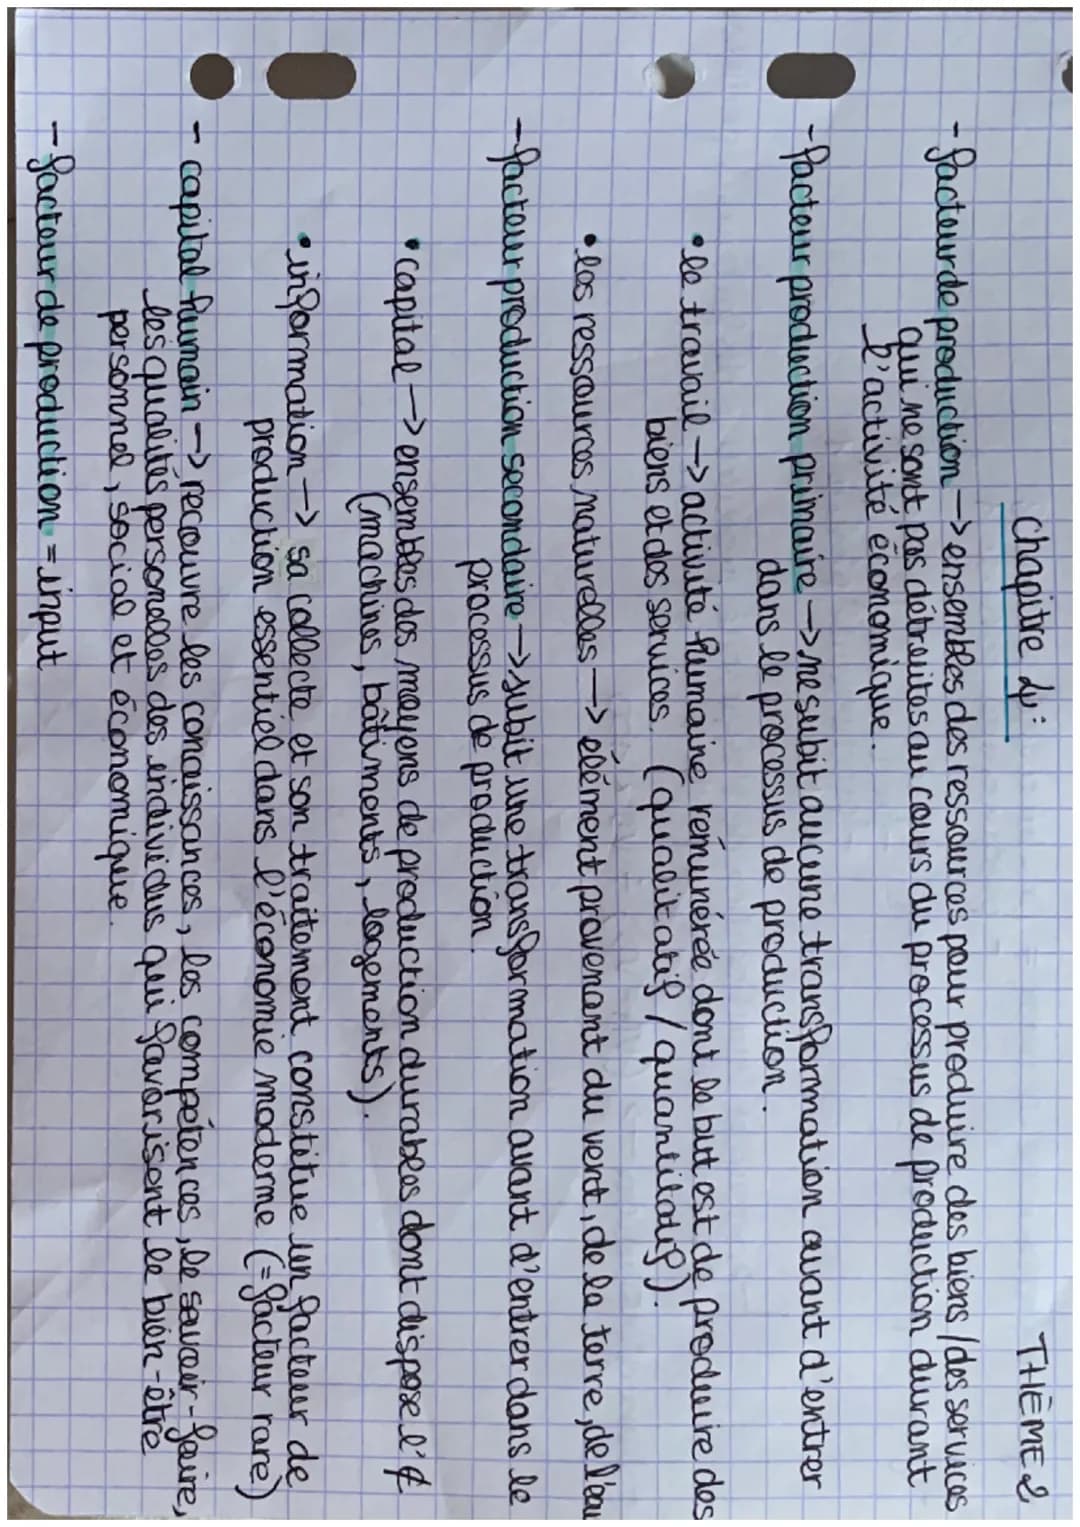 THÈME 2
Chapitre 4:
- facteur de production → ensembles des ressources pour produire des biens / des services
qui ne sont pas détruites au cours du processus de production durant
l'activité économique.
- facteur production primaire → ne subit aucune transformation avant d'entrer
dans le processus de production.
• le travail → activité humaine rémunérée dont le but est de produire des
biens et des services. (qualitatif / quantitatif).
• les ressources naturelles → élément provenant du vent, de la terre, de l'eau
- facteur production secondaire → subit une transformation avant d'entrer dans le
processus de production.
• capital → ensembles des moyens de production durables dont dispose l'₵
(machines, bâtiments, logements).
• information → sa collecte et son traitement constitue un facteur de
production essentiel dans l'économie moderne (= facteur rare)
- capital humain → recouvre les conaissances, les compétences, le savoir-faire,
les qualités personelles des individus qui favorisent le bien-être
personnel, social et économique.
- facteur de production = input